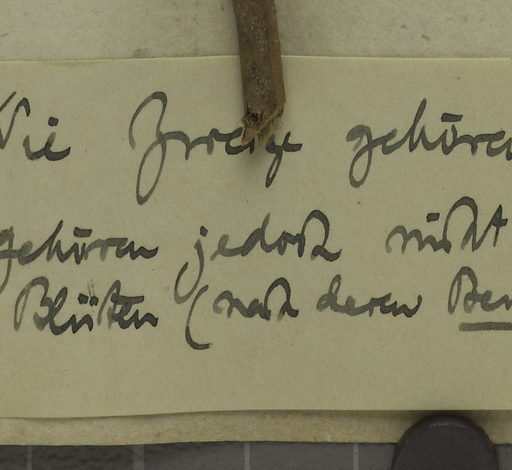 Die Zweige gehören
gehören jedoch nicht
Blüten (nach deren Ber